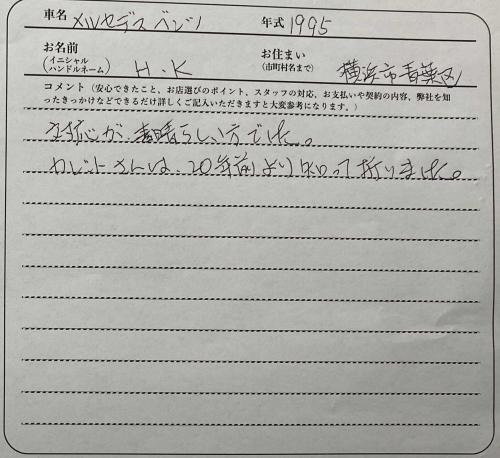 車名 メルセデスベンツ 年式 1995
お名前 (イニシャル ハンドルネーム) H.K お住まい (市町村名まで) 横浜市青葉区
コメント (安心できたこと、お店選びのポイント、スタッフの対応、お支払いや契約の内容、弊社を知
ったきっかけなどできるだけ詳しくご記入いただきますと大変参考になります。)
対応が、素晴らしい方でした。
カレントさんは、20年前より知って折りました。